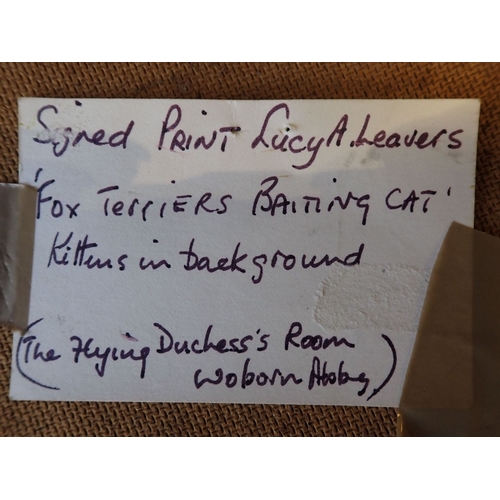 Signed PRINT Lucy A. Leavers
'FOX TERRIERS BAITING CAT'
Kittens in background
(The Flying Duchess's Room
Woborn Abbey)